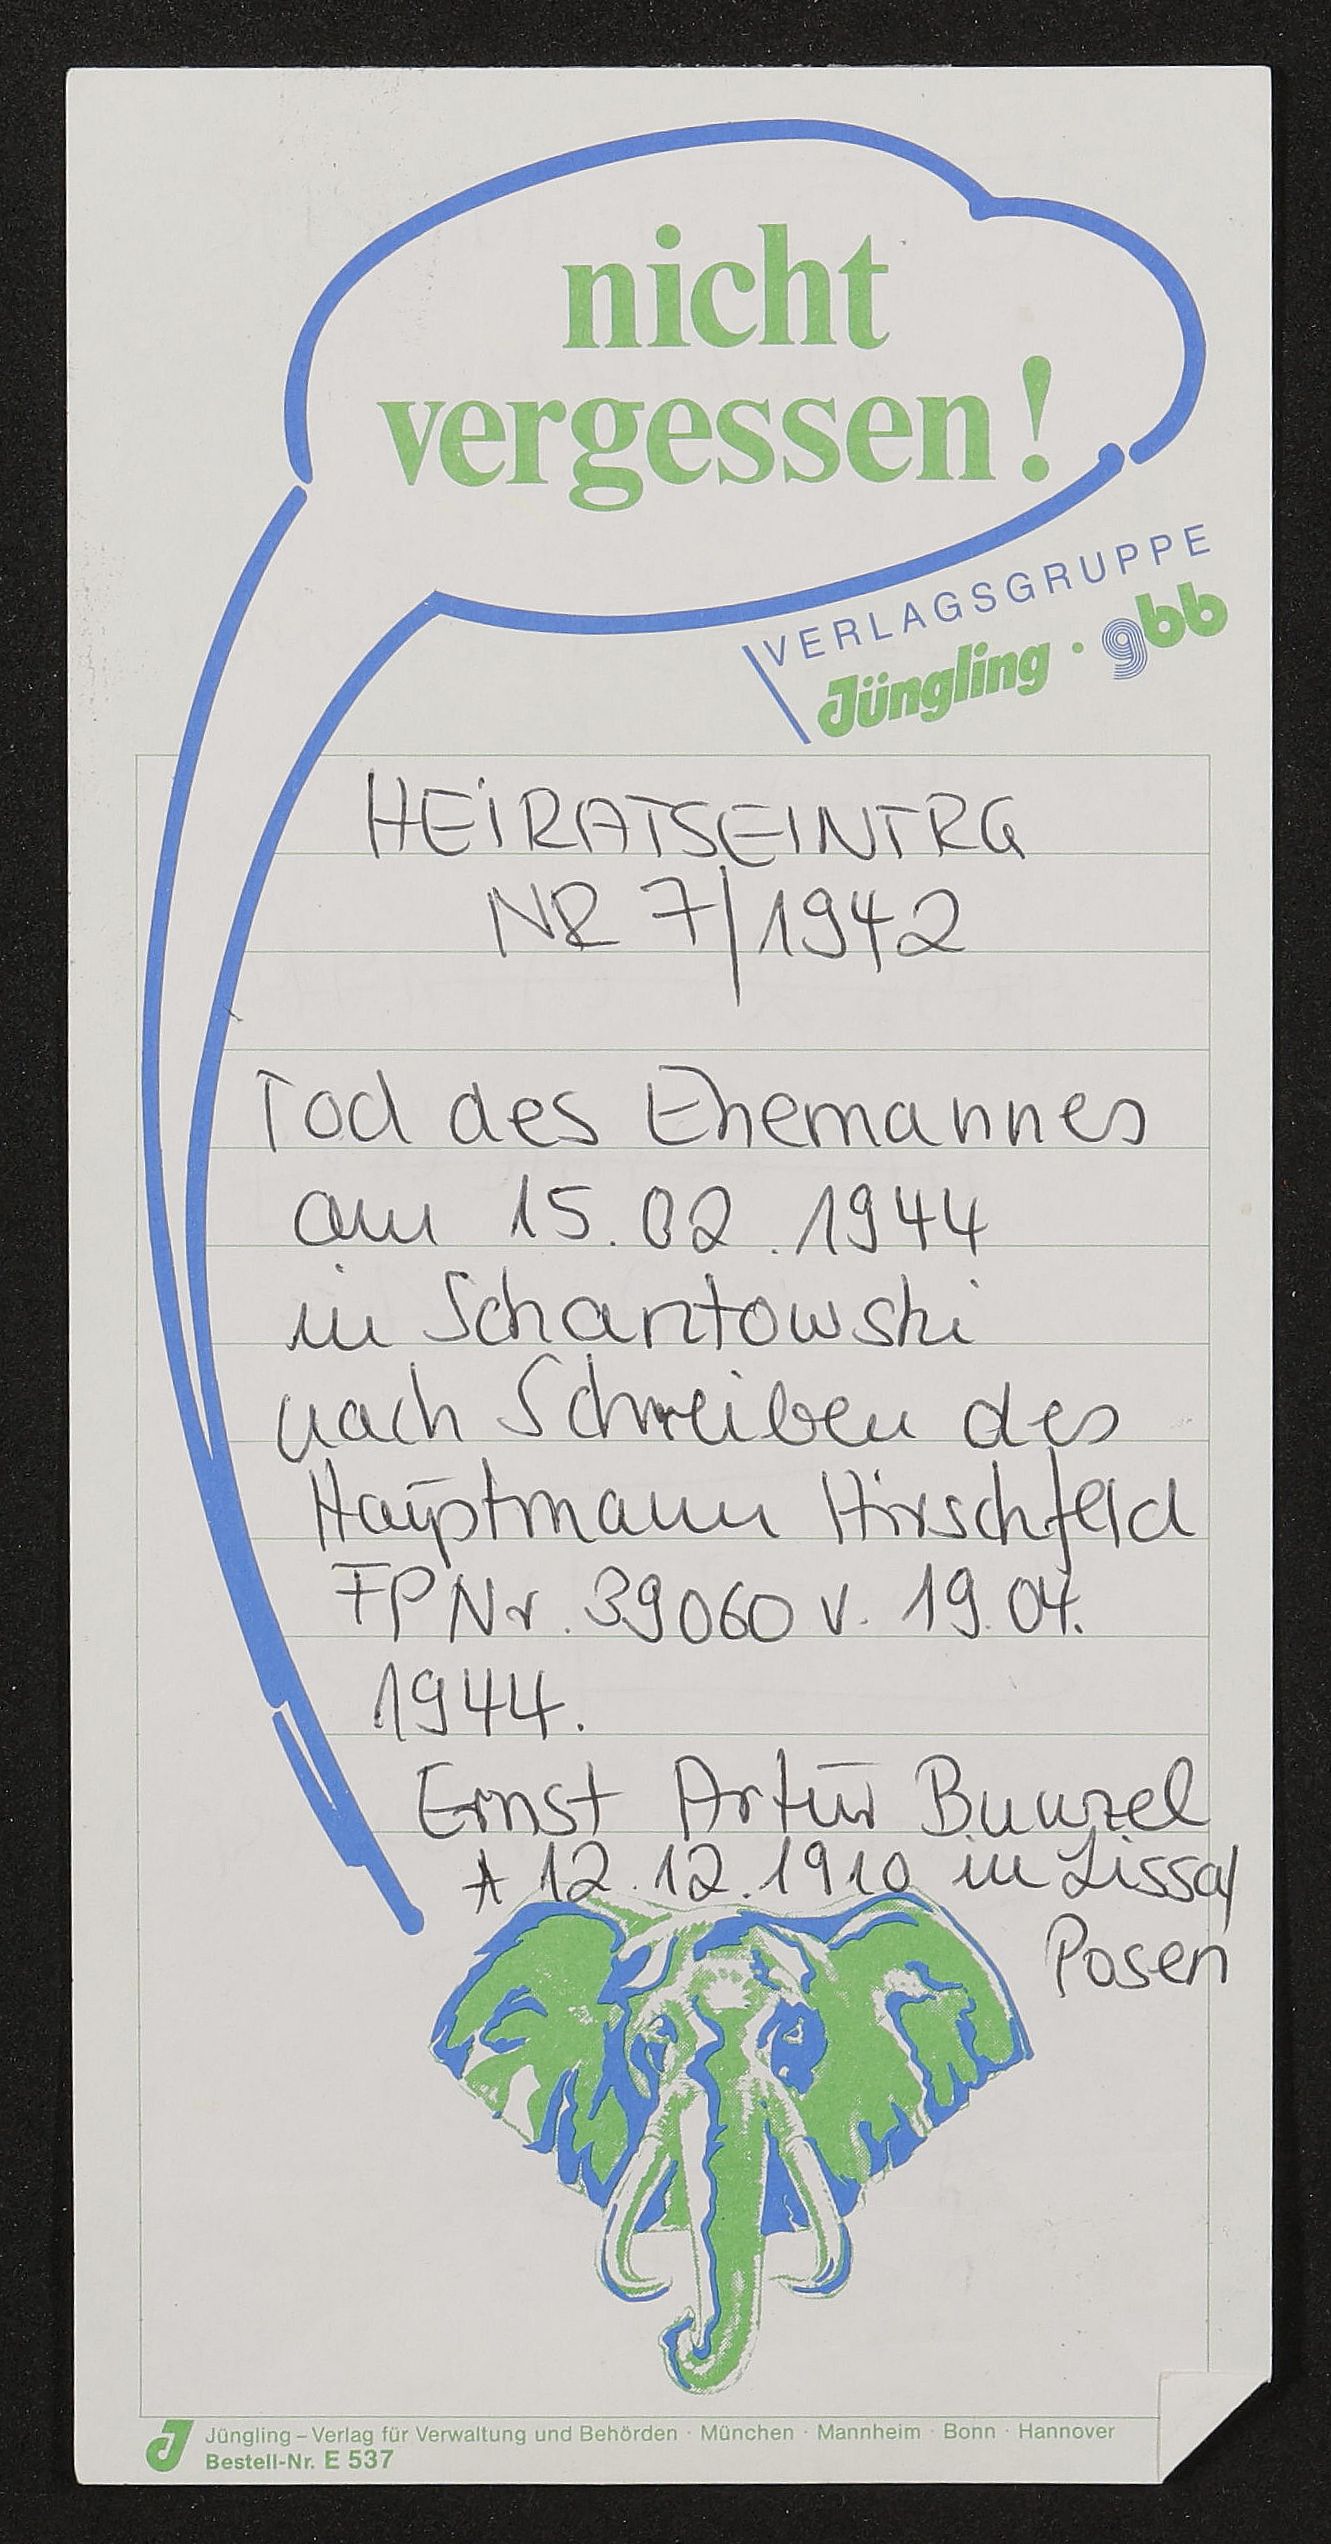 nicht
vergessen!
VERLAGSGRUPPE
Jüngling · gbb
HEIRATSEINTRG
NR 7/1942
Tod des Ehemannes
am 15.02.1944
in Schantowski
nach Schreiben des
Hauptmann Hirschfeld
FPNr. 39060 v. 19.04.
1944.
Ernst Artur Bunzel
* 12.12.1910 in Lissa/
Posen
Jüngling – Verlag für Verwaltung und Behörden · München · Mannheim · Bonn · Hannover
Bestell-Nr. E 537